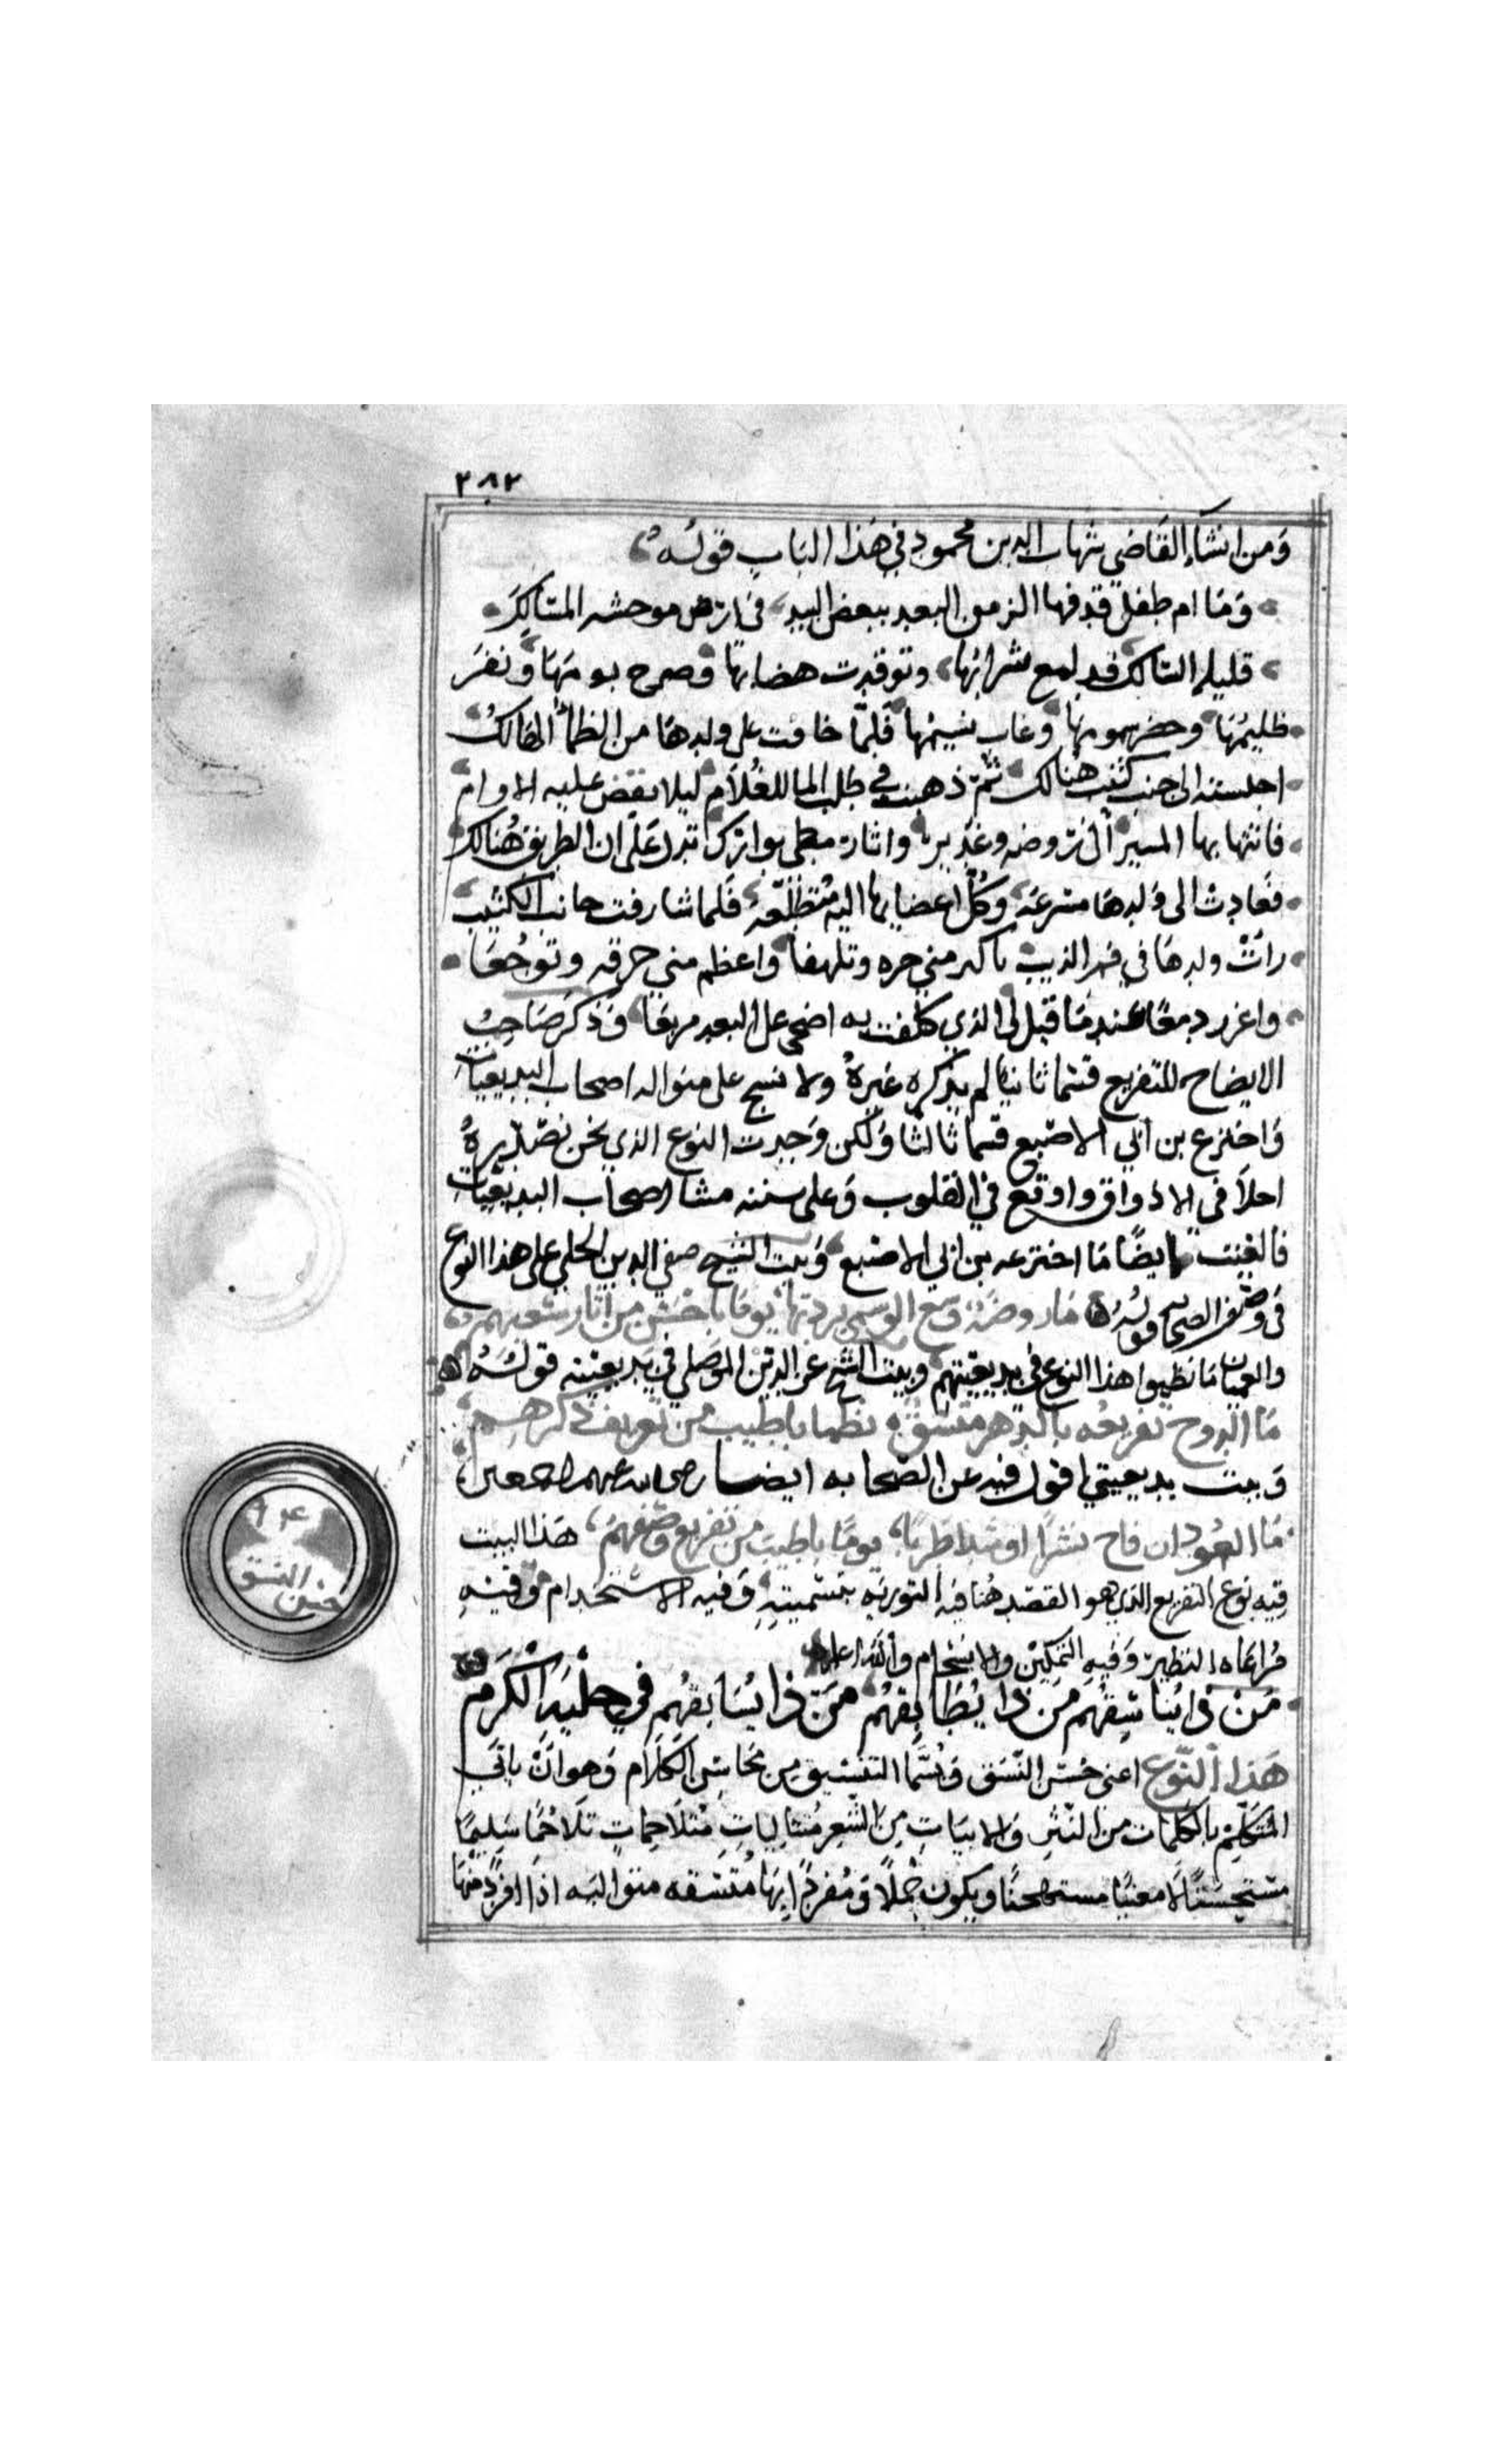 ٣٨٢
ومن انشاء القاضي شهاب الدين محمود في هذا الباب قوله
وما ام طفل قدفها الزمن البعيد ببعض البيد في ارض موحشه المسالك
قليله السالك قد لمع سرابها وتوقدت هضابها وصرح بومها ونفر
ظليمها وحضر سمومها وغاب نسيمها فلما خافت على ولدها من الظمأ الهالك
اجلسته الى جنب كثيب هنالك ثم ذهبت في طلب الما للغلام ليلا يقض عليه الاوام
فانتها بها المسير الى روضه وغدير واثاره مطي بوارك تدل على ان الطريق هنالك
فعادت الى ولدها مسرعه وكل اعضايها اليه متطلعه فلما شارفت جانب الكثيب
رأت ولدها في فم الذيب باكبر مني حره وتلهفا واعظم مني حرقه وتوجعا
واغزر دمعا عندما قيل لي الذي كلفت به اضحى على البعد مزمعا وذكر صاحب
الايضاح للتفريع قسما ثانيا لم يذكره غيره ولا نسج على منواله اصحاب البديعيات
واخترع بن ابي الاصبع قسما ثالثا ولكن وجدت النوع الذي نحن بصدده
احلا في الاذواق واوقع في القلوب وعلى سننه مشا اصحاب البديعيات
فالغيت ايضا ما اخترعه بن ابي الاصبع وبيت الشيخ صفي الدين الحلي على هذا النوع
في وصف الصحابه قوله ما روضه وشع الوسمي بردتها يوما باحسن من اثار سعيهم
والعميان ما نظموا هذا النوع في بديعيتهم وبيت الشيخ عز الدين الموصلي في بديعيته قوله
ما الدوح تفريعه بالزهر متسق نظما باطيب من تعريف ذكرهم
وبيت بديعيتي اقول فيه عن الصحابه ايضا رضى الله عنهم اجمعين
ما العود ان فاح نشرا او شدا طربا يوما باطيب من تفريع وصفهم هذا البيت
فيه نوع التفريع الذي هو القصد هنا فيه التوريه بتسميته وفيه الاستخدام وفيه
مراعاه النظير وفيه التمكين والانسجام والله اعلم
من ذا يناسقهم من ذا يطابقهم من ذا يسابقهم في حلبة الكرم
هذا النوع اعني حسن النسق ويسما التنسيق من محاسن الكلام وهو ان ياتي
المتكلم بالكلمات من النثر والابيات من الشعر متتاليات متلاحمات تلاحما سليما
مستحسنا لا معيبا مستهجنا ويكون جملا ومفرداتها متسقه متواليه اذا افرد منها
حسن النسق